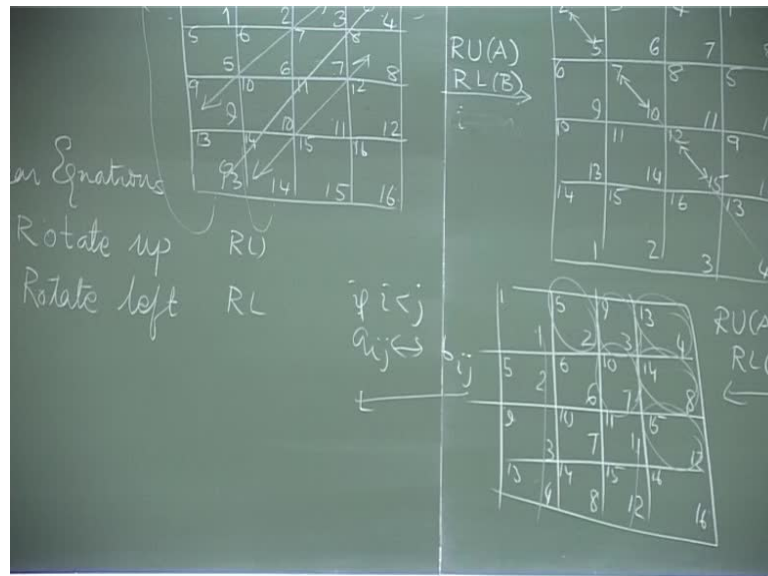 1 2 3 4
5 6 7 8
5 6 7 8
9 10 11 12
9 10 11 12
13 14 15 16
13 14 15 16
an Equations
Rotate up RU
Rotate left RL
RU(A)
RL(B)
5 6 7
6 7 8 5
9 10 11
10 11 12 9
13 14 15
14 15 16 13
1 2 3 4
if i<j
aij ⇔ bij
1 5 9 13
1 2 3 4
5 6 10 14
2 6 7 8
9 10 11 15
3 7 11 12
13 14 15 16
4 8 12 16
RU(A
RL(